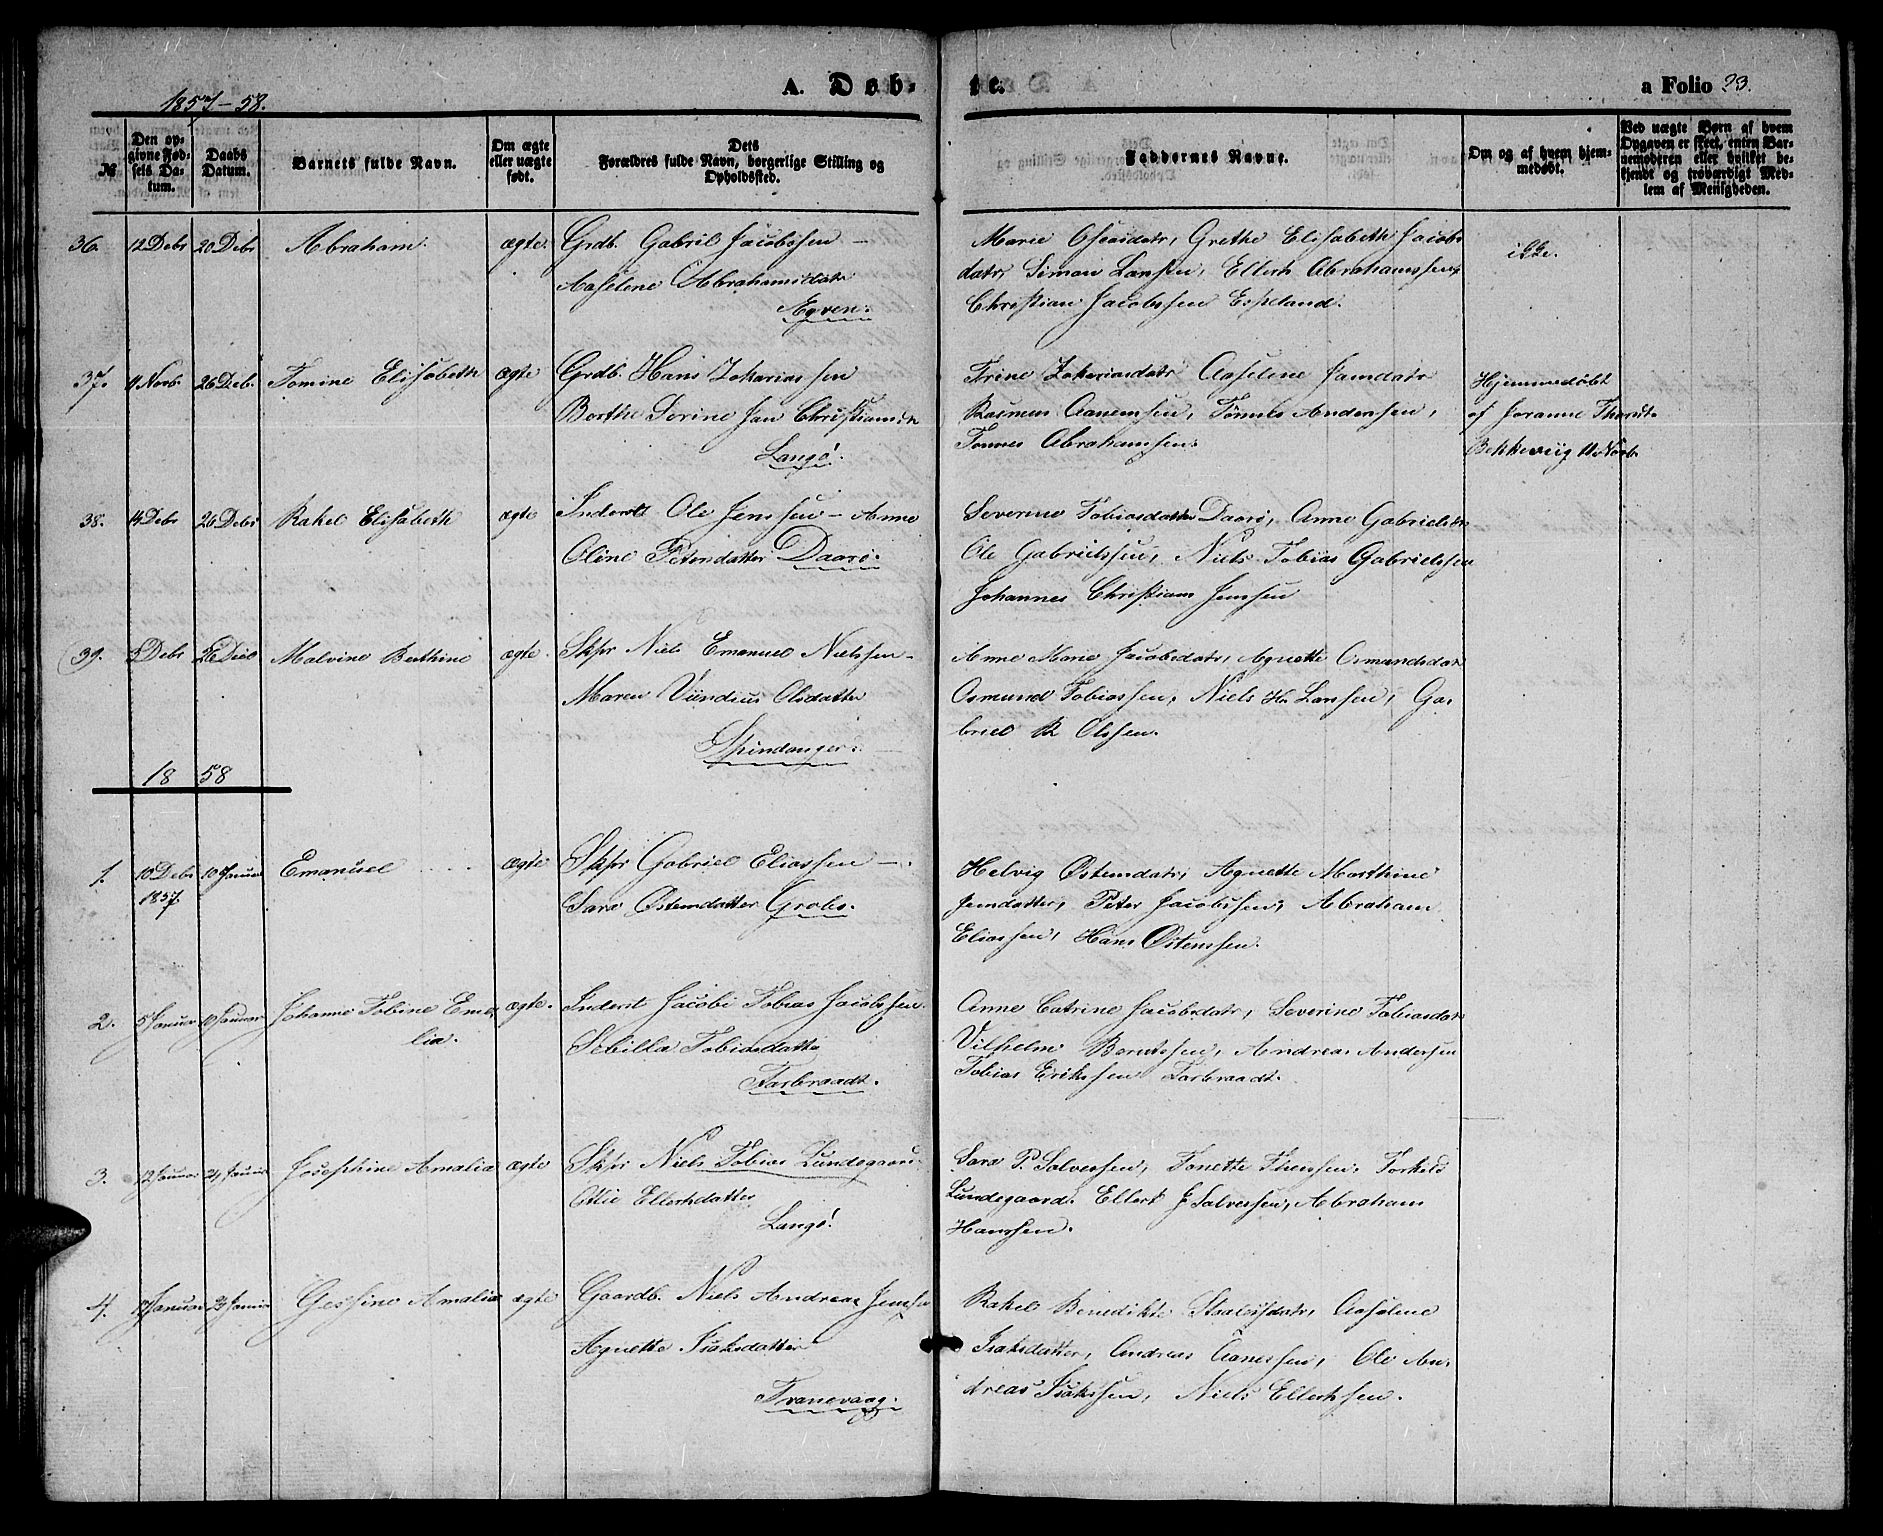 1857-58.
A. Døb-
te.
a Folio 23.
№
Den opgivne Fødsels Datum.
Daabs Datum.
Barnets fulde Navn.
Om ægte eller uægte født.
Dets Forældres fulde Navn, borgerlige Stilling og Opholdssted.
Faddernes Navne.
Om og af hvem hjemmedøbt.
Ved uægte Børn af hvem Opgaven er skeet, enten Barnemoderen eller hvilket bekjendt og troværdigt Medlem af Menigheden.
36. 12 Debr 20 Debr Abraham. ægte. Grdb. Gabriel Jacobssen –
Aaselene Abrahamsdatr
Marie Oseasdatr, Grethe Elisabeth Jacobs
datr, Simon Larssen, Ellert Abrahamssen,
Christian Jacobssen Espeland.
ikke.
37. 11 Novb. 26 Deb. Tomine Elisabeth ægte Grdb. Hans Zakariassen
Berthe Serine Jan Christiansdr
Langø.
Trine Zakariasdatr Aaselene Jansdatr
Rasmus Aanensen, Tønnes Anderssen,
Tønnes Abrahamsen.
Hjemmedøbt
af Joranne
Bekkeviig 11 Novb.
38. 14 Debr 26 Debr Rakel Elisabeth ægte Inderst Ole Jenssen – Anne
Oline Petersdatter Daarø.
Severine Tobiasdatter Daarø, Anne Gabrielsdr
Ole Gabrielssen, Niels Tobias Gabrielssen
Johannes Christian Jenssen
39. 5 Debr 26 Debr Malvine Berthine ægte. Skpr Niels Emanuel Nielssen –
Maren Olsdatter
Spindanger.
Anne Marie Jacobsdatr, Agnette Osmundsdatr
Osmund Tobiassen, Niels H. Larssen, Ga-
briel R Olssen.
1858
1. 10 Debr 10 Januar Emanuel ægte Skpr Gabriel Eliassen –
1857
Sara Østensdatter Grobs.
Helvig Østensdatr, Agnette Marthine
Jensdatter, Peter Jacobssen, Abraham
Eliassen, Hans Østenssen.
2. 5 Januar 10 Januar Johanne Tobine Eme
lia. ægte. Inderst Jacob Tobias Jacobssen
Sebilla Tobiasdatter
Farbraadt.
Anne Catrine Jacobsdatr, Severine Tobiasdatr
Vilhelm Berntssen, Andreas Anderssen
Tobias Erikssen Farbraadt.
3. 12 Januar 24 Januar Josephine Amalia ægte Skpr Niels Tobias Lundegaard
Otlie Ellertsdatter
Langø.
Sara P. Salvessen, Tonette Torkeld
Lundegaard. Ellert J Salvessen, Abraham
Hanssen.
4. Januar Januar Gessine Amalia ægte Gaardb. Niels Andreas Jenssen
Agnette Isaksdatter
Tranevaag.
Rakel Benedikte Aaselene
Isaksdatter, Andreas Aanessen, Ole An-
dreas Isakssen, Niels Ellertssen.